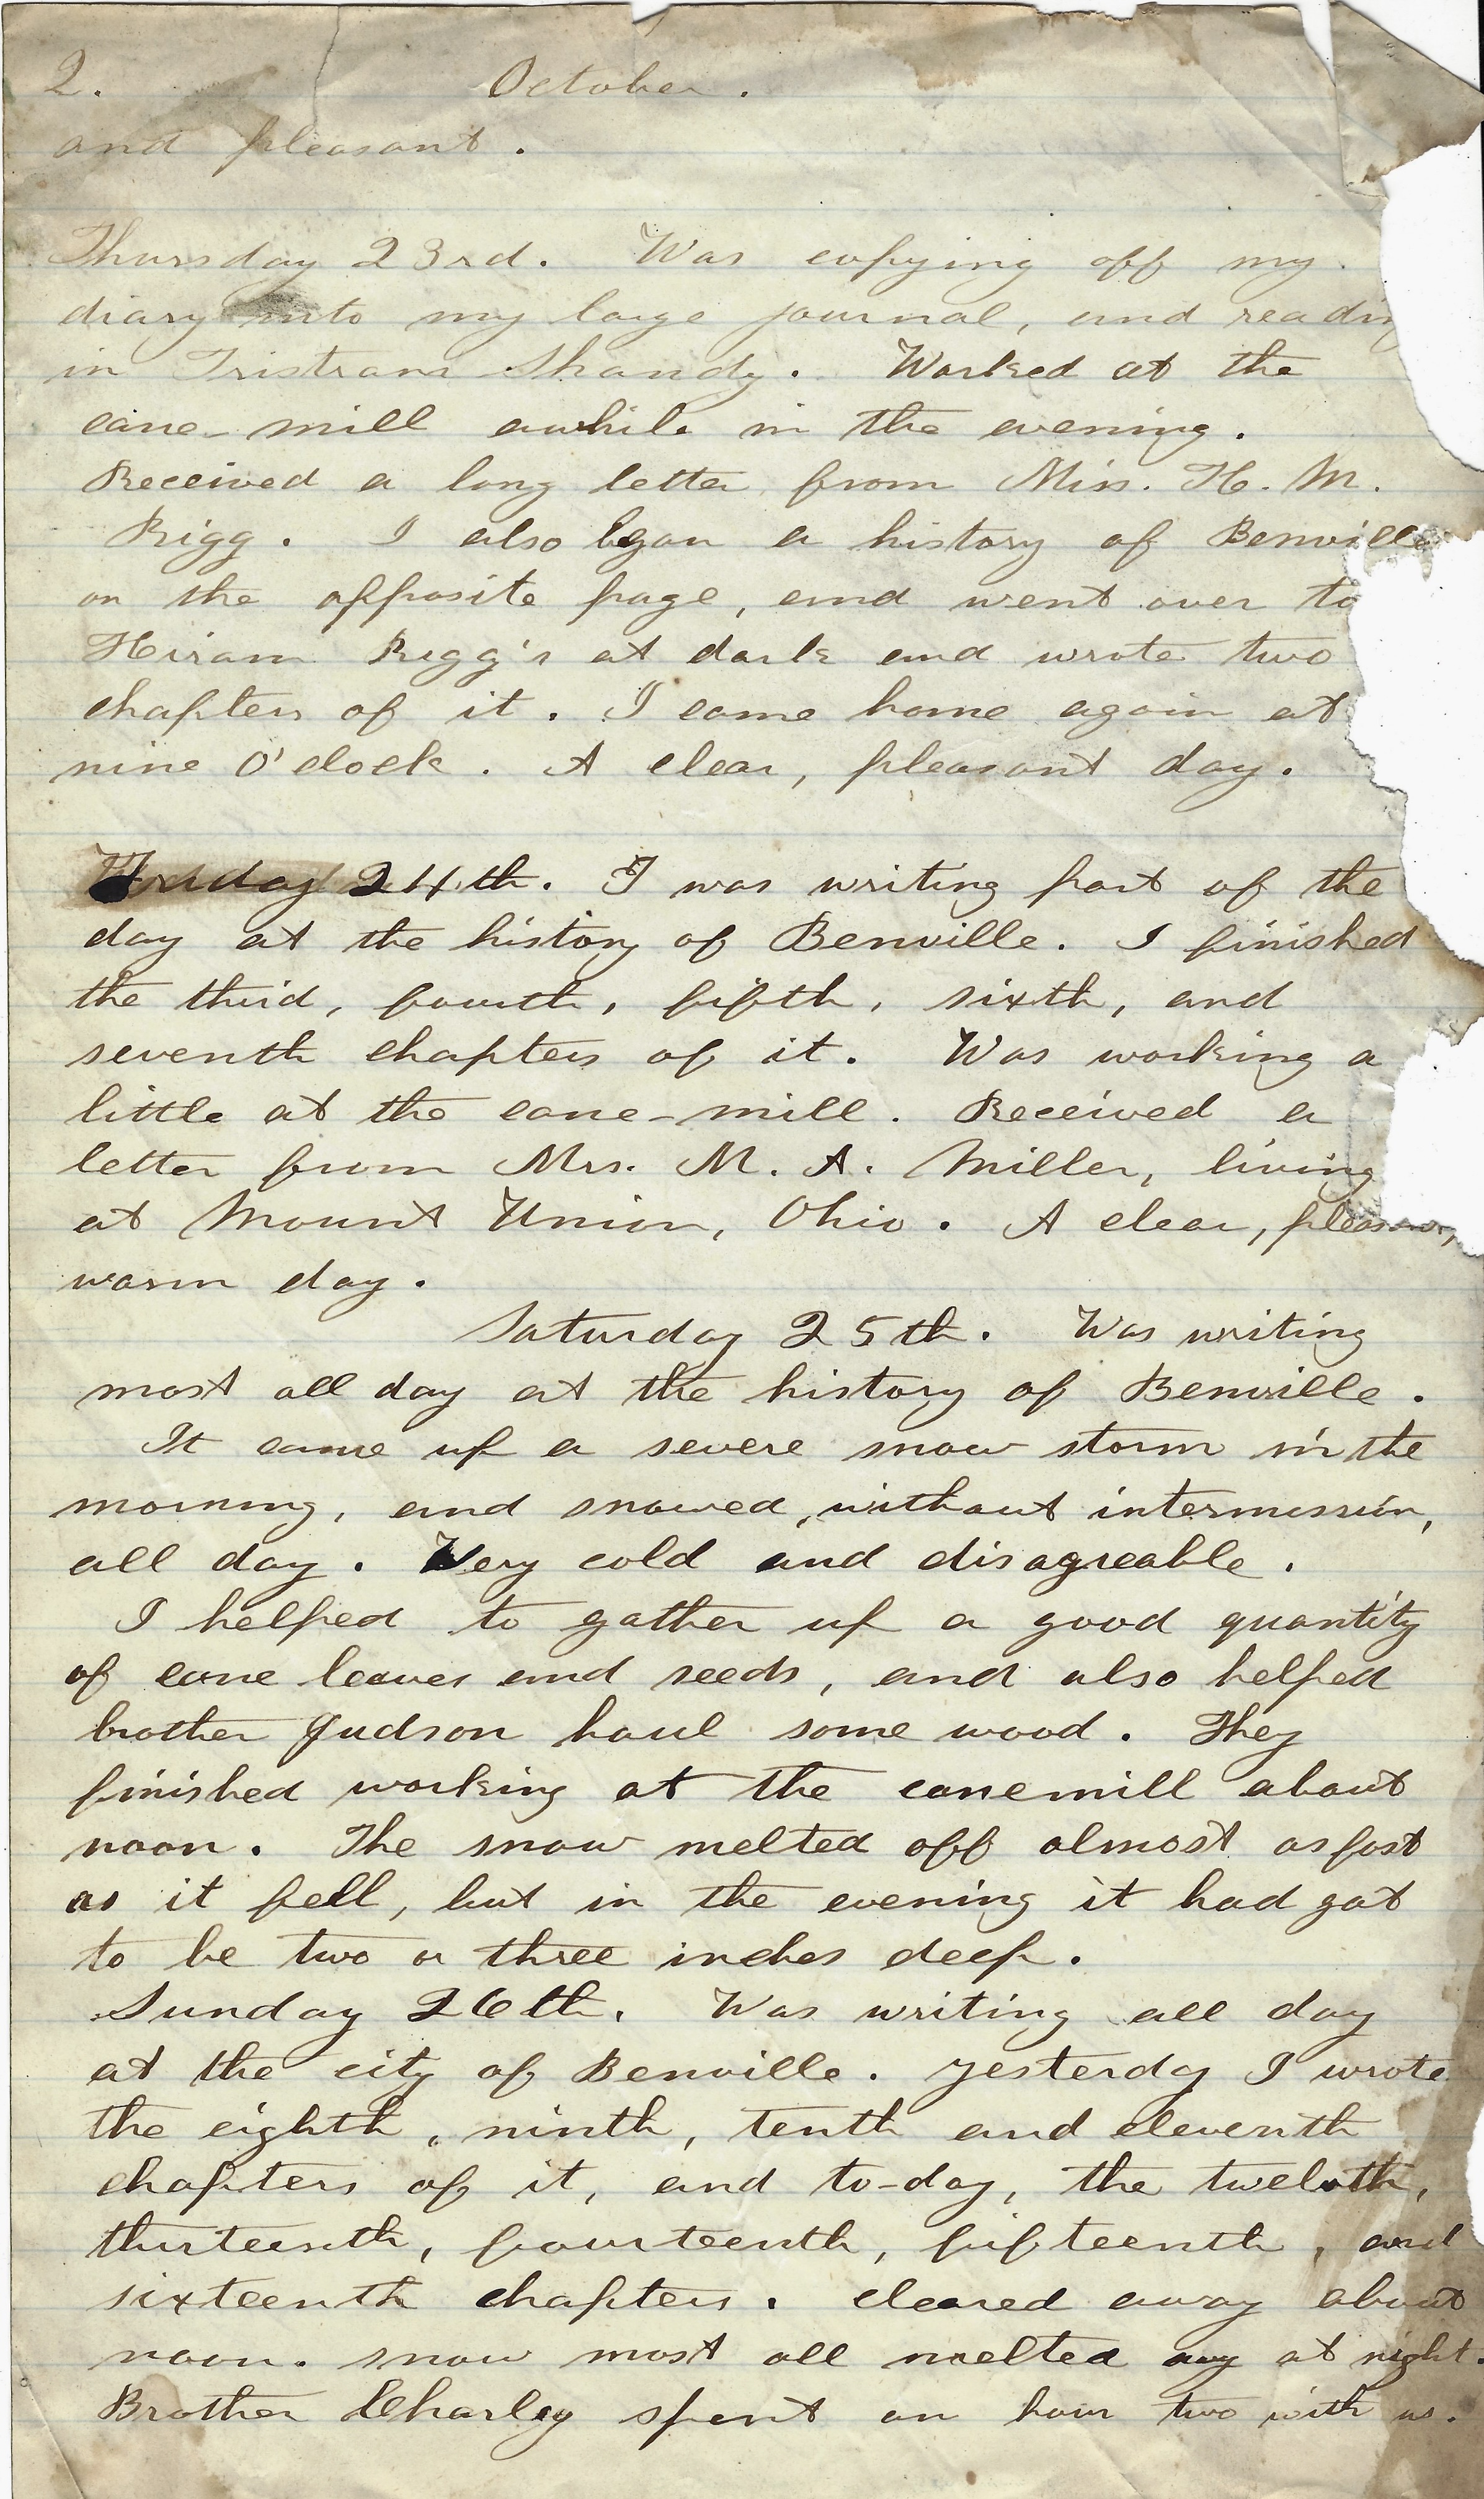 2. October.
and pleasant.
Thursday 23rd. Was copying off my
diary into my large journal, and reading
in Tristram Shandy. Worked at the
cane-mill awhile in the evening.
Received a long letter from Miss. H. M.
Rigg. I also began a history of Benville
on the opposite page, and went over to
Hiram Rigg's at dark and wrote two
chapters of it. I came home again at
nine O'clock. A clear, pleasant day.
Friday 24th. I was writing part of the
day at the history of Benville. I finished
the third, fourth, fifth, sixth, and
seventh chapters of it. Was working a
little at the cane-mill. Received a
letter from Mrs. M. A. Miller, living
at Mount Union, Ohio. A clear, pleasant,
warm day.
Saturday 25th. Was writing
most all day at the history of Benville.
It came up a severe snow storm in the
morning, and snowed, without intermission,
all day. Very cold and disagreable.
I helped to gather up a good quantity
of cane leaves and seeds, and also helped
brother Judson haul some wood. They
finished working at the canemill about
noon. The snow melted off almost as fast
as it fell, but in the evening it had got
to be two or three inches deep.
Sunday 26th. Was writing all day
at the city of Benville. Yesterday I wrote
the eighth, ninth, tenth and eleventh
chapters of it, and to-day, the twelvth,
thirteenth, fourteenth, fifteenth, and
sixteenth chapters. Cleared away about
noon. Snow most all melted away at night.
Brother Charley spent an hour two with us.